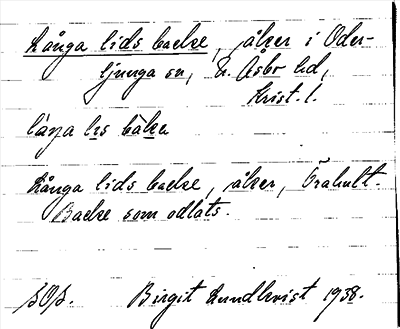 Långa lids backe, åker i Oder-
ljunga sn, N. Åsbo hd,
Krist. l.
låŋa lis bakə
Långa lids backe, åker, Örahult.
Backe som odlats.
Birgit Lundkvist 1938.